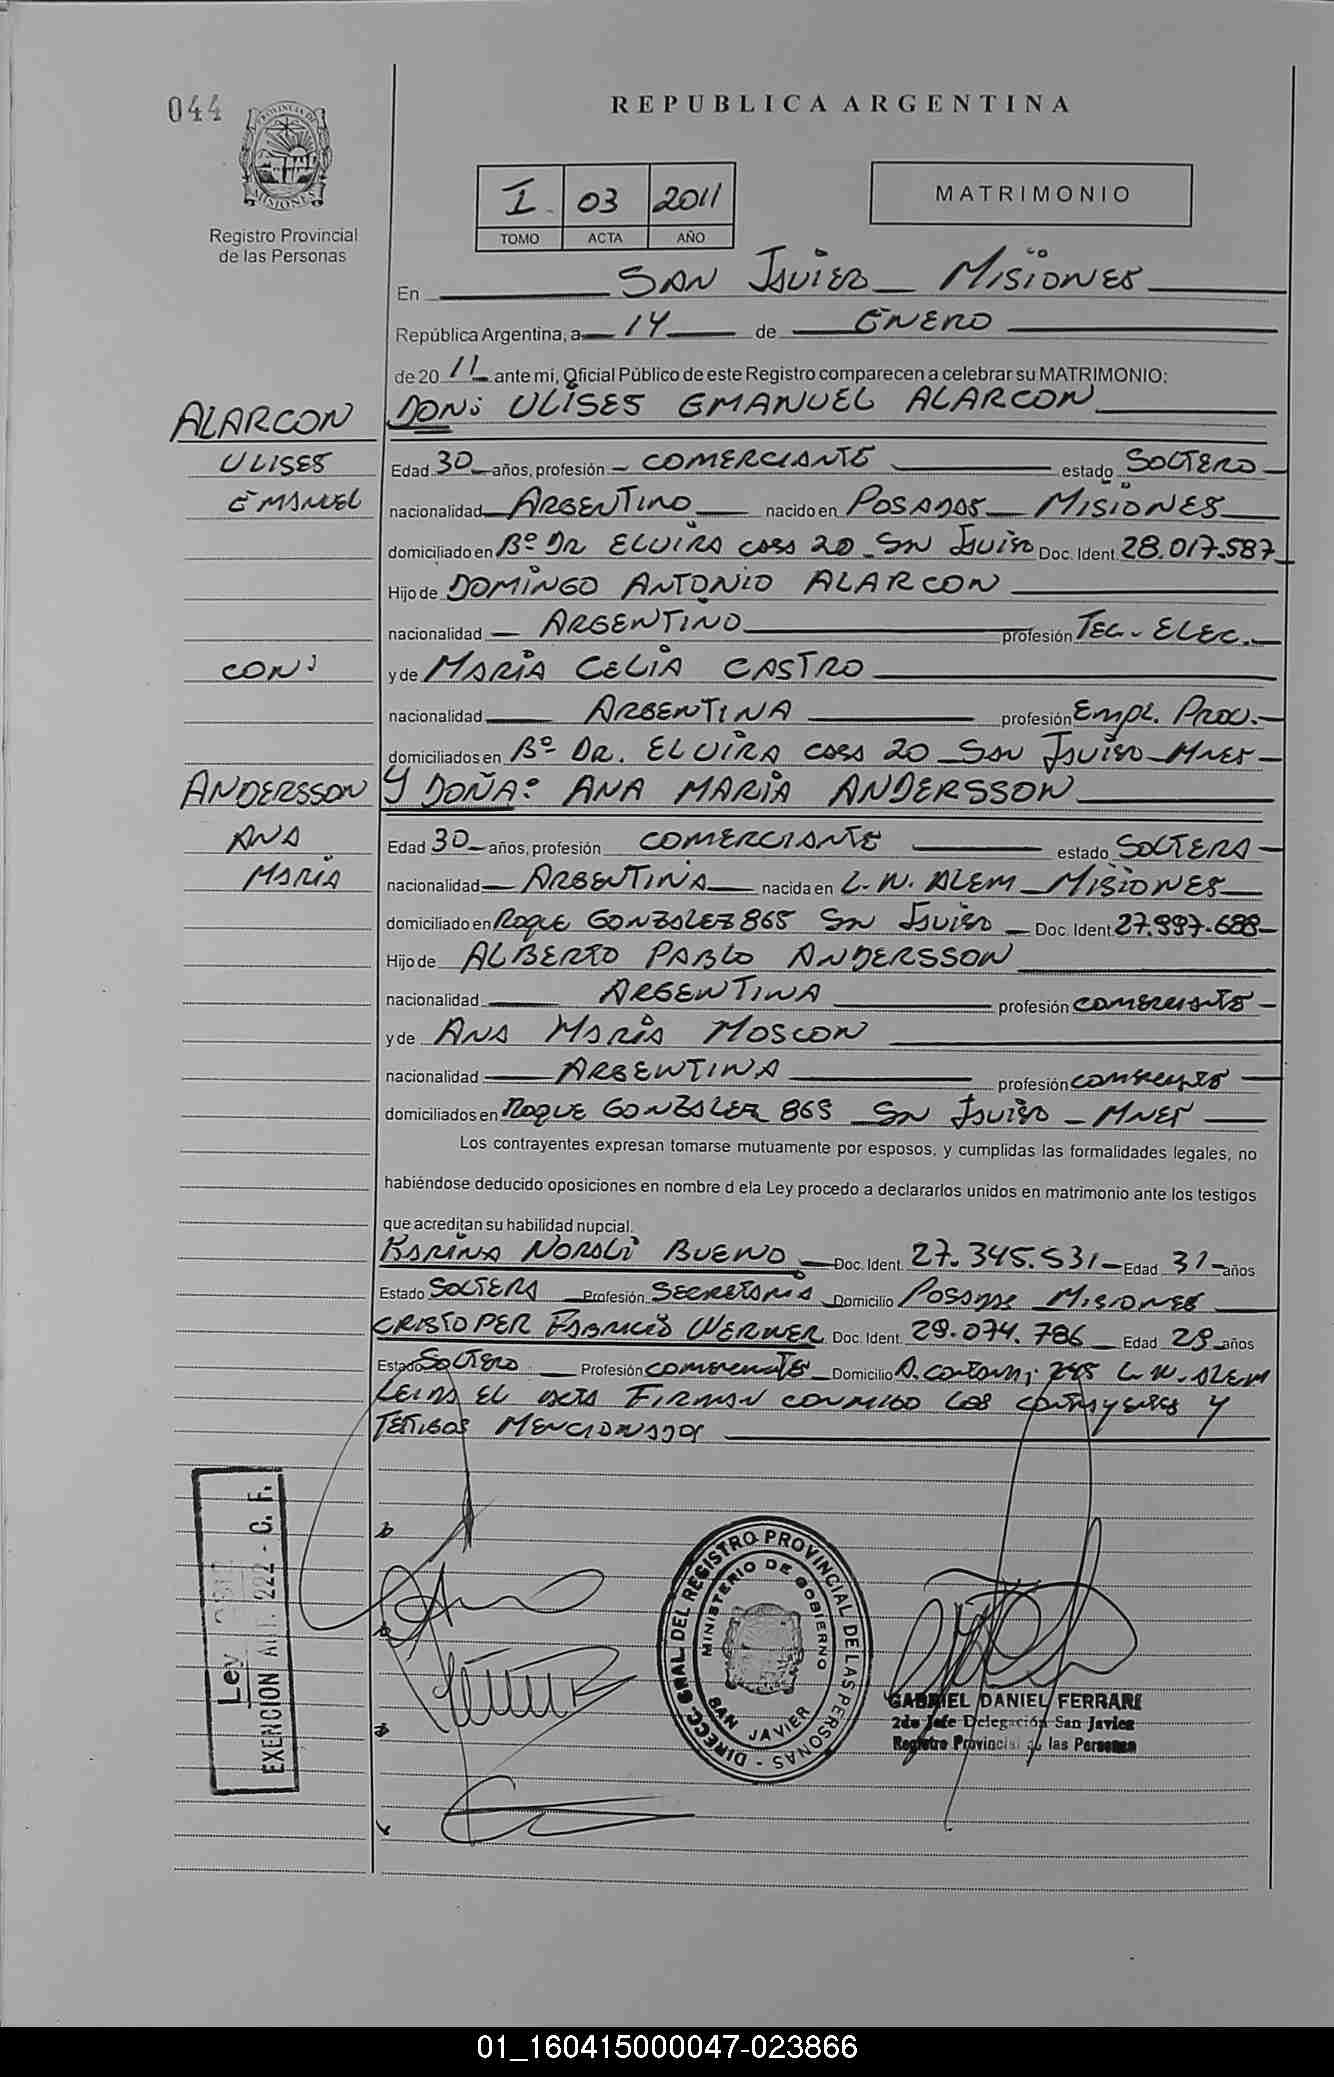 044
REPUBLICA ARGENTINA
PROVINCIA DE MISIONES
Registro Provincial
de las Personas
I 03 2011
TOMO ACTA AÑO
MATRIMONIO
En SAN JAVIER MISIONES
República Argentina, a 14 de ENERO
de 20 11 ante mi, Oficial Público de este Registro comparecen a celebrar su MATRIMONIO:
ALARCON DON: ULISES EMANUEL ALARCON
ULISES Edad 30 años, profesión COMERCIANTE estado SOLTERO
EMANUEL nacionalidad ARGENTINO nacido en POSADAS MISIONES
domiciliado en Bº DR ELVIRA CASA 20 SAN JAVIER Doc. Ident. 28.017.587
Hijo de DOMINGO ANTONIO ALARCON
nacionalidad ARGENTINO profesión TEC. ELEC.
CON: y de MARIA CELIA CASTRO
nacionalidad ARGENTINA profesión EMPL. PROV.
domiciliados en Bº DR. ELVIRA CASA 20 SAN JAVIER MNES
ANDERSSON Y DOÑA: ANA MARIA ANDERSSON
ANA Edad 30 años, profesión COMERCIANTE estado SOLTERA
MARIA nacionalidad ARGENTINA nacida en L.N. ALEM MISIONES
domiciliado en ROQUE GONZALEZ 865 SAN JAVIER Doc. Ident. 27.997.688
Hijo de ALBERTO PABLO ANDERSSON
nacionalidad ARGENTINA profesión COMERCIANTE
y de ANA MARIA MOSCON
nacionalidad ARGENTINA profesión COMERCIANTE
domiciliados en ROQUE GONZALEZ 865 SAN JAVIER MNES
Los contrayentes expresan tomarse mutuamente por esposos, y cumplidas las formalidades legales, no
habiéndose deducido oposiciones en nombre d ela Ley procedo a declararlos unidos en matrimonio ante los testigos
que acreditan su habilidad nupcial.
KARINA NORALI BUENO Doc. Ident. 27.345.531 Edad 31 años
Estado SOLTERA Profesión SECRETARIA Domicilio POSADAS MISIONES
CRISTOPER FABRICIO WERNER Doc. Ident. 29.074.786 Edad 29 años
Estado SOLTERO Profesión COMERCIANTE Domicilio 245 L.N. ALEM
LEIDA EL ACTA FIRMAN CONMIGO LOS CONTRAYENTES Y
TESTIGOS MENCIONADOS
Ley
EXENCION ART. 222 - C. F.
DIRECC. GRAL. DEL REGISTRO PROVINCIAL DE LAS PERSONAS
MINISTERIO DE GOBIERNO
SAN JAVIER
GABRIEL DANIEL FERRARI
2do Jefe Delegación San Javier
Registro Provincial de las Personas
01_160415000047-023866